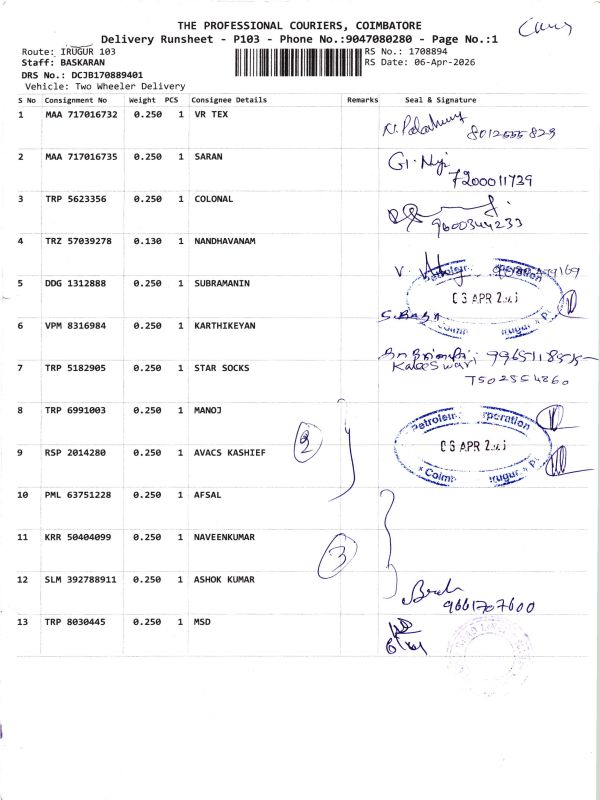 THE PROFESSIONAL COURIERS, COIMBATORE
Delivery Runsheet - P103 - Phone No.:9047080280 - Page No.:1
Route: IRUGUR 103
RS No.: 1708894
Staff: BASKARAN
RS Date: 06-Apr-2026
DRS No.: DCJB170889401
Vehicle: Two Wheeler Delivery
S No Consignment No Weight PCS Consignee Details Remarks Seal & Signature
1 MAA 717016732 0.250 1 VR TEX
8012555829
2 MAA 717016735 0.250 1 SARAN
7200011739
3 TRP 5623356 0.250 1 COLONAL
9600344233
4 TRZ 57039278 0.130 1 NANDHAVANAM
5 DDG 1312888 0.250 1 SUBRAMANIN
06 APR
6 VPM 8316984 0.250 1 KARTHIKEYAN
7 TRP 5182905 0.250 1 STAR SOCKS
Kaleeswari
8 TRP 6991003 0.250 1 MANOJ
2
06 APR
9 RSP 2014280 0.250 1 AVACS KASHIEF
10 PML 63751228 0.250 1 AFSAL
11 KRR 50404099 0.250 1 NAVEENKUMAR
3
12 SLM 392788911 0.250 1 ASHOK KUMAR
9661707600
13 TRP 8030445 0.250 1 MSD